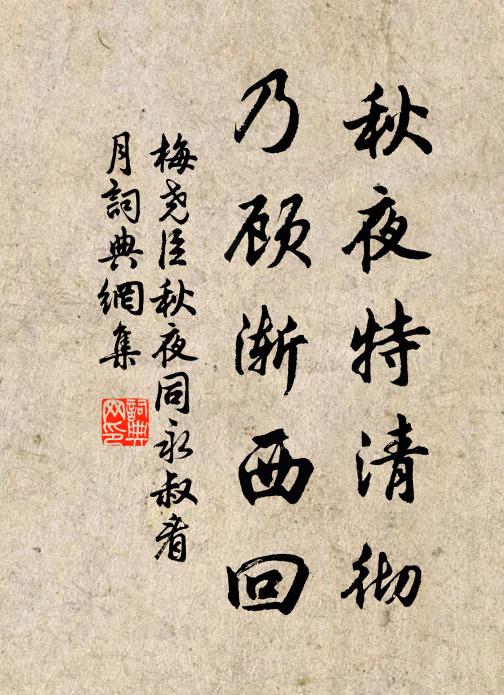 秋夜特清彻
乃顾渐西回
梅尧臣秋夜同永叔看
月詞典網集
詞典
网印